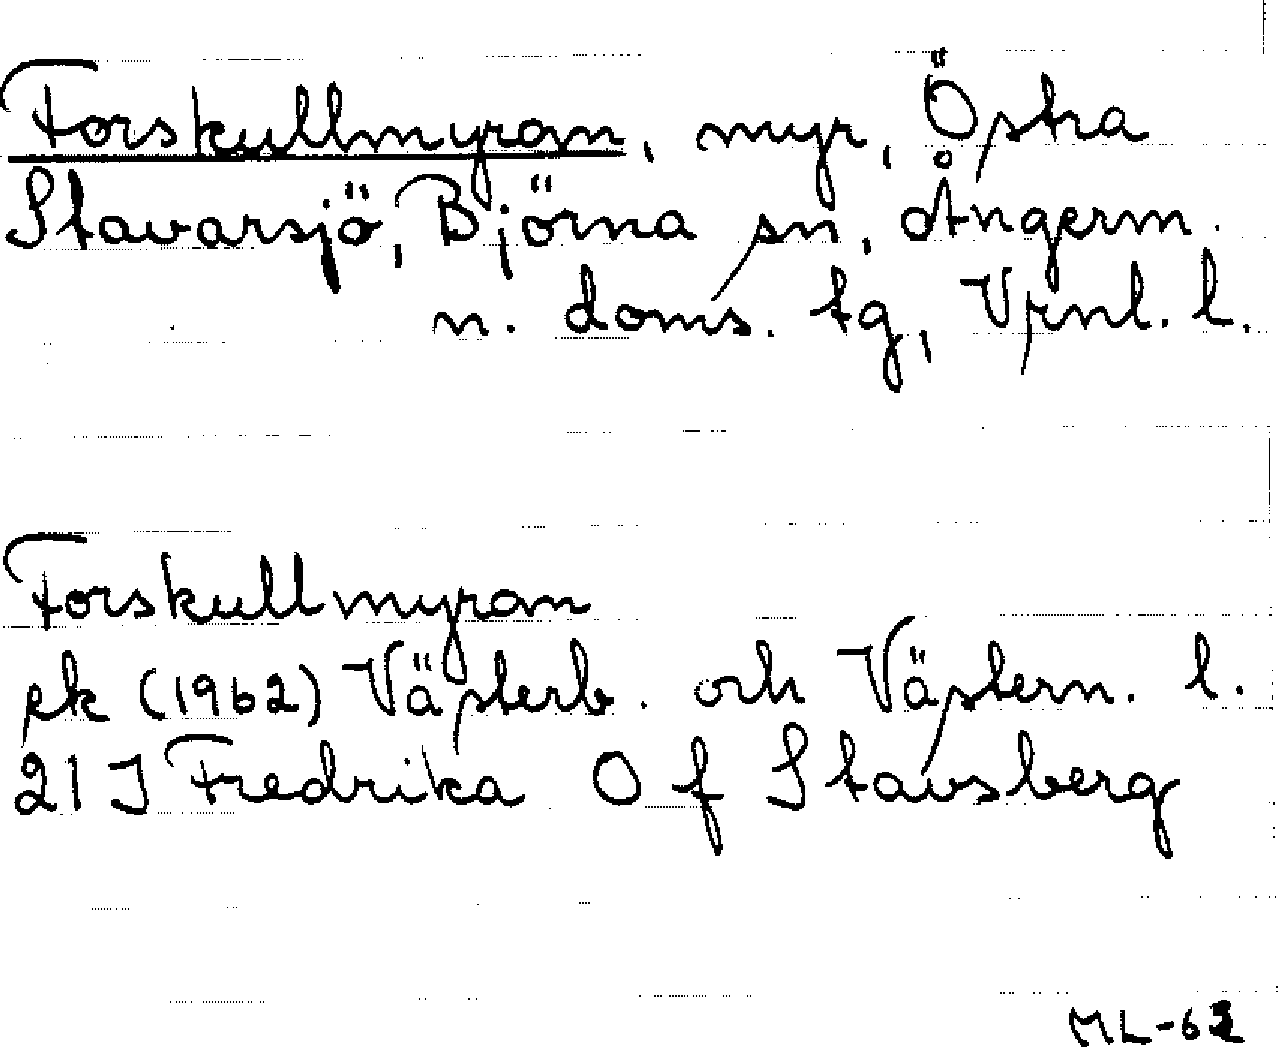 Forskullmyran, myr, Östra
Stavarsjö, Björna sn, Ångerm.
n. doms. tg, Vrnl. l.
Forskullmyran
ek (1962) Västerb. och Västern. l.
21 J Fredrika O f Stavsberg
ML-62